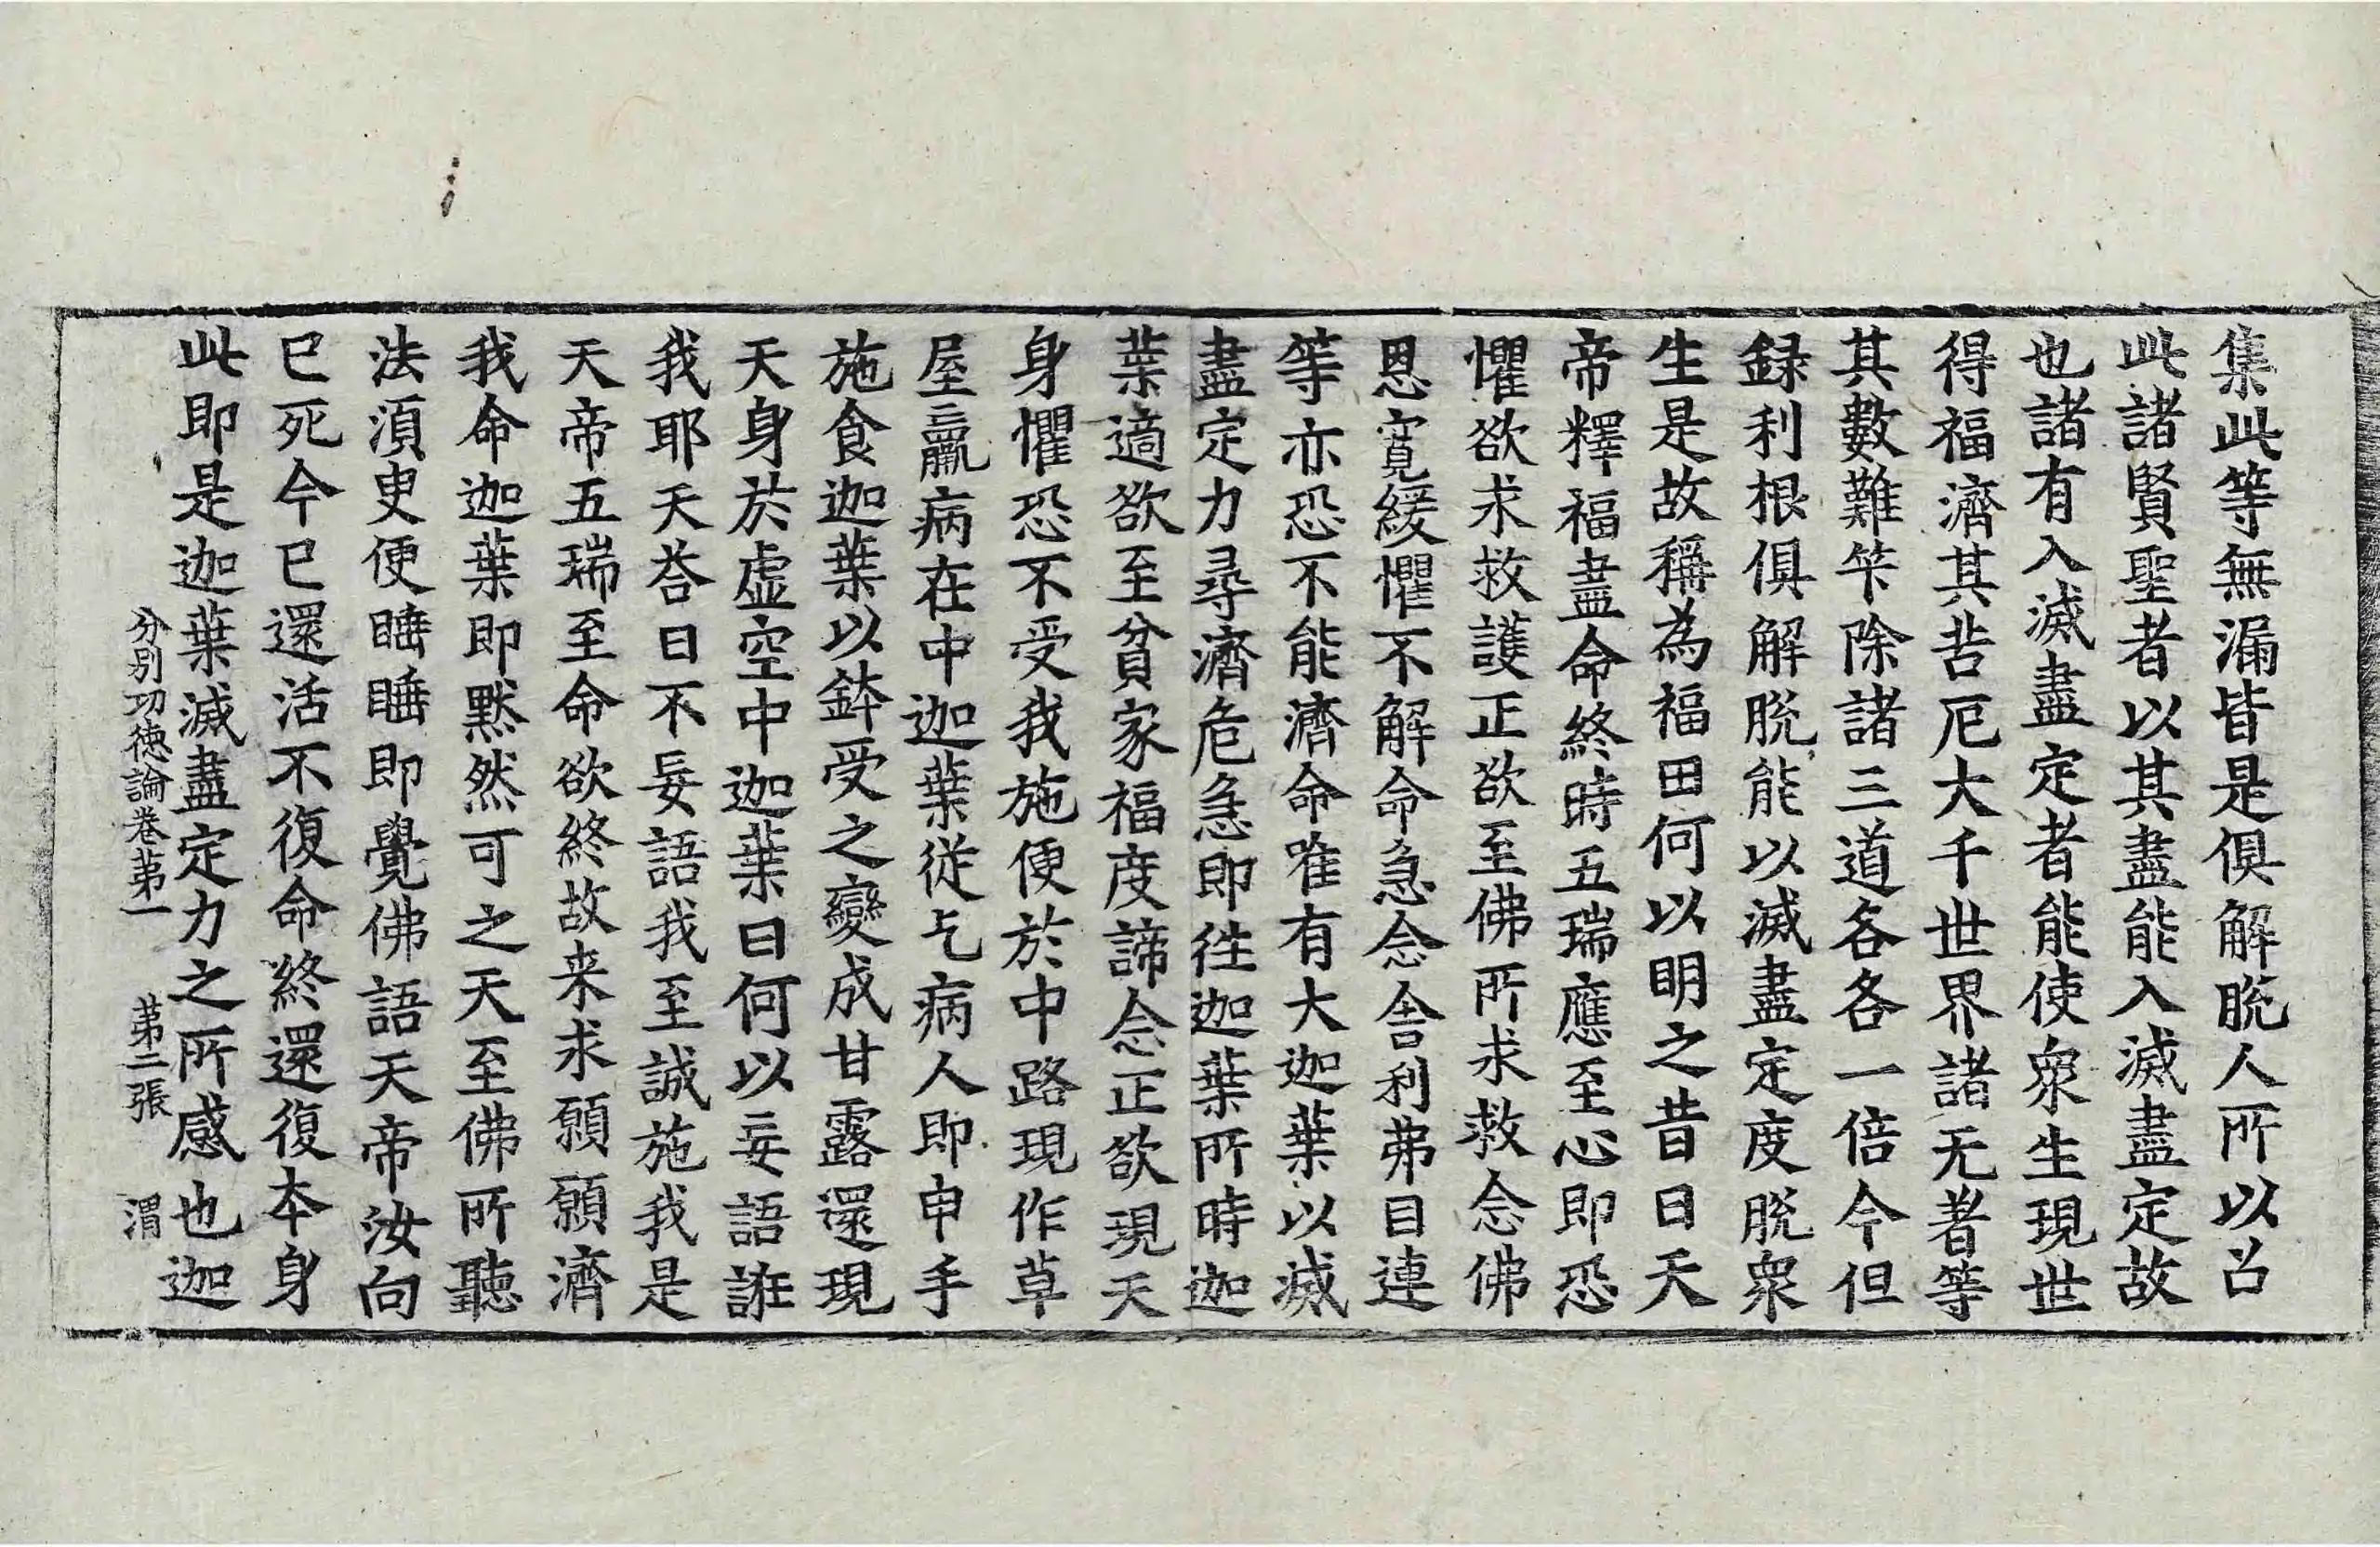 集此等無漏皆是俱解脫人所以召
此諸賢聖者以其盡能入滅盡定故
也諸有入滅盡定者能使眾生現世
得福濟其苦厄大千世界諸无著等
其數難笇除諸三道各各一倍今但
録利根俱解脫能以滅盡定度脫眾
生是故稱為福田何以明之昔日天
帝釋福盡命終時五瑞應至心即恐
懼欲求救護正欲至佛所求救念佛
恩寬緩懼不解命急念舍利弗目連
等亦恐不能濟命唯有大迦葉以滅
盡定力尋濟危急即往迦葉所時迦
葉適欲至貧家福度諦念正欲現天
身懼恐不受我施便於中路現作草
屋羸病在中迦葉從乞病人即申手
施食迦葉以鉢受之變成甘露還現
天身於虛空中迦葉曰何以妄語誑
我耶天荅曰不妄語我至誠施我是
天帝五瑞至命欲終故来求願願濟
我命迦葉即默然可之天至佛所聽
法須臾便睡睡即覺佛語天帝汝向
已死今已還活不復命終還復本身
此即是迦葉滅盡定力之所感也迦
分別功德論卷第一　第二張　渭